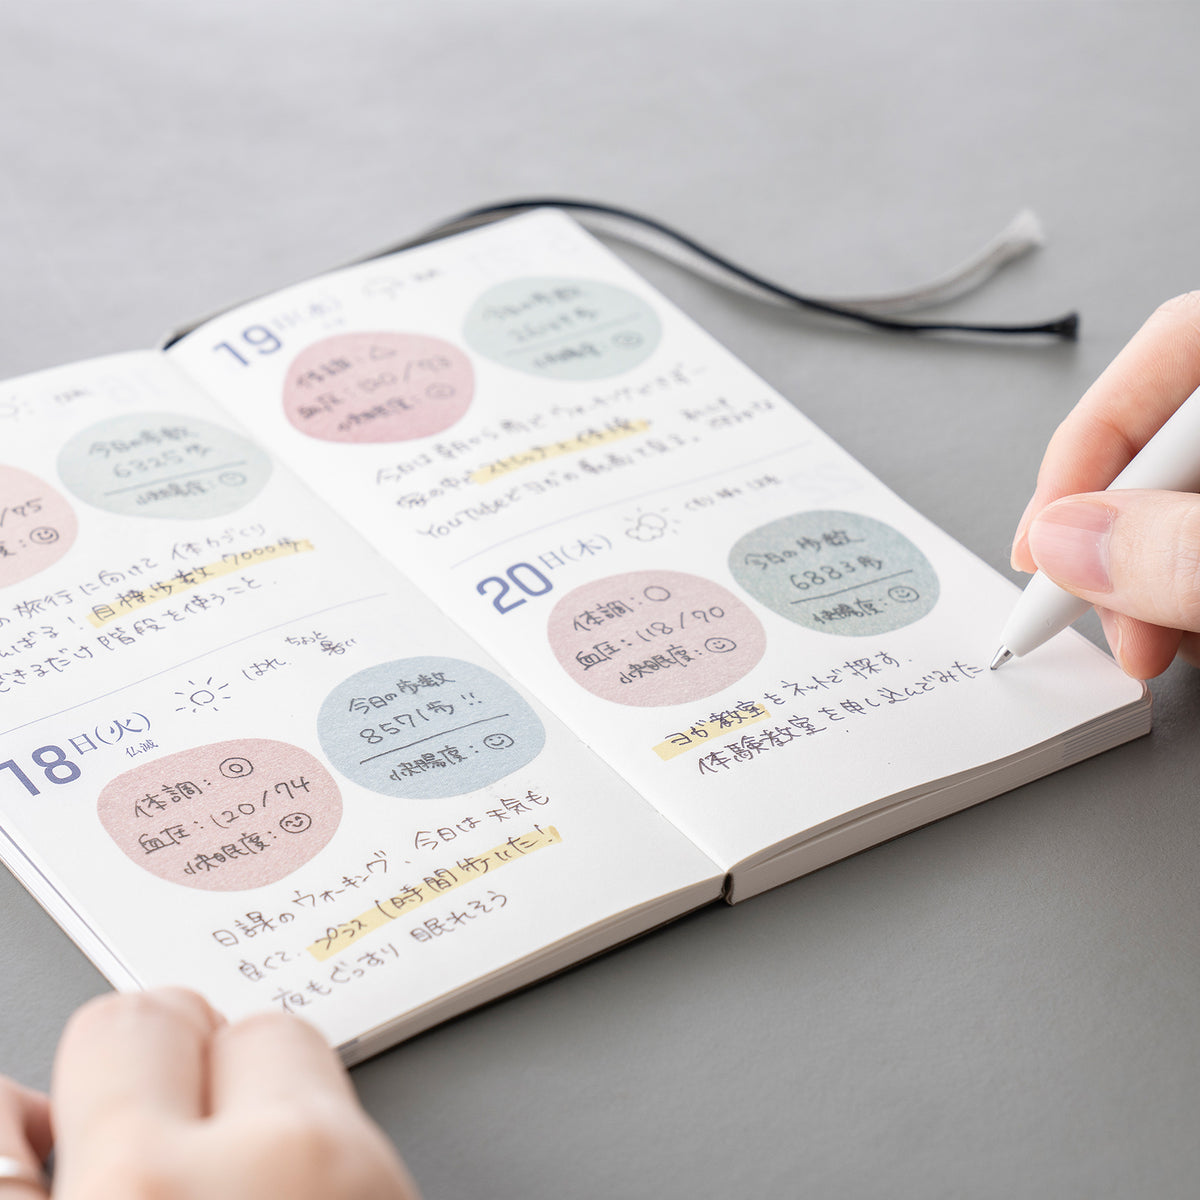 今日の歩数
6325歩
快腸度:
/75
度:
の旅行に向けて 体力づくり
んばる! 目標、歩数 7000歩
できるだけ階段を使うこと
18日(火)
仏滅
はれ、ちょっと暑い
体調:◎
血圧:120/74
快眠度:
今日の歩数
8571歩!!
快腸度:
日課のウォーキング、今日は天気も
良くて、プラス1時間歩いた!
夜もぐっすり眠れそう
19日(水)
体調:△
血圧:120/73
快眠度:
今日の歩数
快腸度:
今日は朝から雨でウォーキングできず…
家の中でストレッチと体操
YouTubeでヨガの動画を見る。
20日(木)
くもり
体調:○
血圧:118/70
快眠度:
今日の歩数
6883歩
快腸度:
ヨガ教室をネットで探す.
体験教室を申し込んでみた